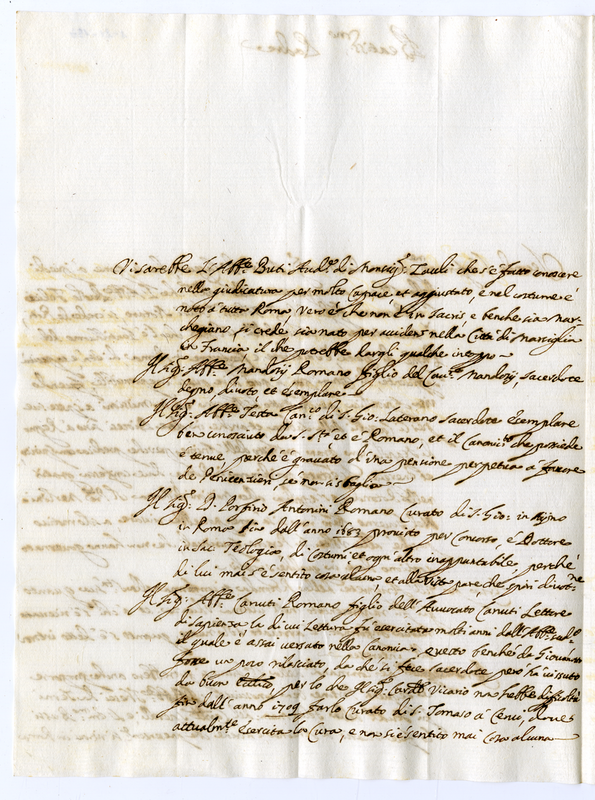 Vi sarebbe L'Abb.e Buti Aud.re di Mons.r Zauli che s'è fatto conoscere
nella giudicatura per molto capace, et aggiustato, e nel costume è
noto à tutta Roma, vero è che non è in Sacris e benche sia Mar-
chegiano, si crede sia nato per accidens nella Città di Marsiglia
in Francia, il che potrebbe dargli qualche
Il Sig.r Abb.e Mandosij Romano figlio del Cau.re Mandosij sacerdote
degno, divoto, et esemplare
Il Sig.r Abb.e Testa Can.co di S. Gio: Laterano Sacerdote esemplare
ben conosciuto da S. S.tà et è Romano, et il Canonic.to che possiede
è tenue perche è gravato d'una pensione perpetua a favore
de Penitenzieri, se non si sbaglia
Il Sig.r D. Porfirio Antonini Romano Curato di S. Gio: in
in Roma sin dall'anno 1683 provisto per Concorso, è Dottore
in Sac. Teologia, di costumi et ogn'altro inappuntabile, perche
di lui mai s'è sentito cosa alcuna, et alla Vista pare che spiri divot.ne
Il Sig.r Abb.e Canuti Romano figlio dell'Avvocato Canuti Lettore
di Sapienza la di cui Lettura fù esercitata molti anni dall'Abb.e
il quale è assai versato nella canonica, e benche da Giovane
fosse un poco rilasciato, da che si fece sacerdote però hà vissuto
da buon per lo che Il Sig.r Card.l Vicario non hebbe difficoltà
fin dall'anno 1709 farlo Curato di S. Tomaso à Cenci, dove
attualm.te esercita la Cura, e non si è sentito mai cosa alcuna